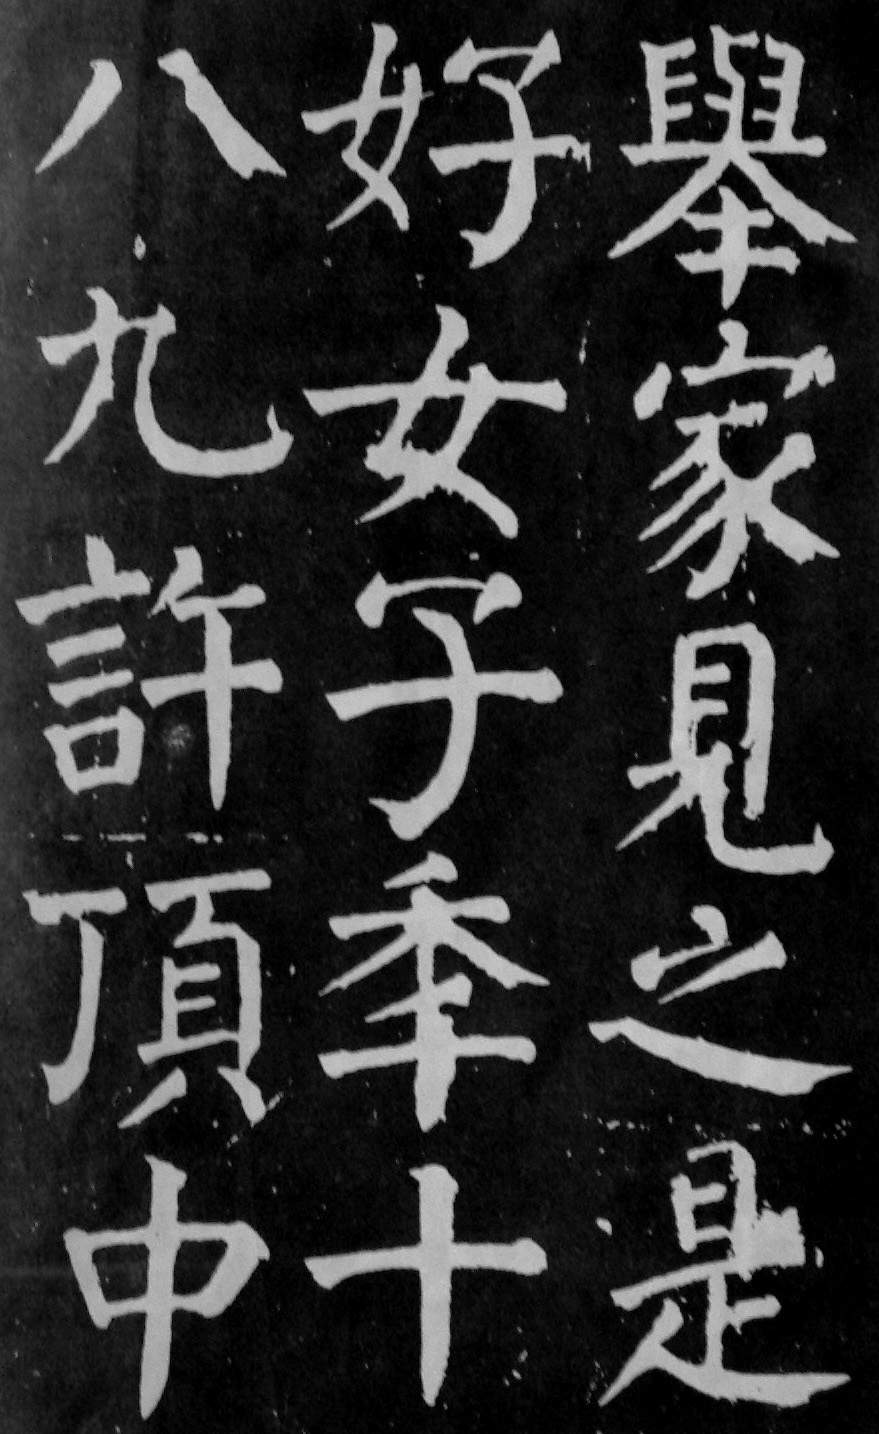 舉家見之是
好女子秊十
八九許頂中